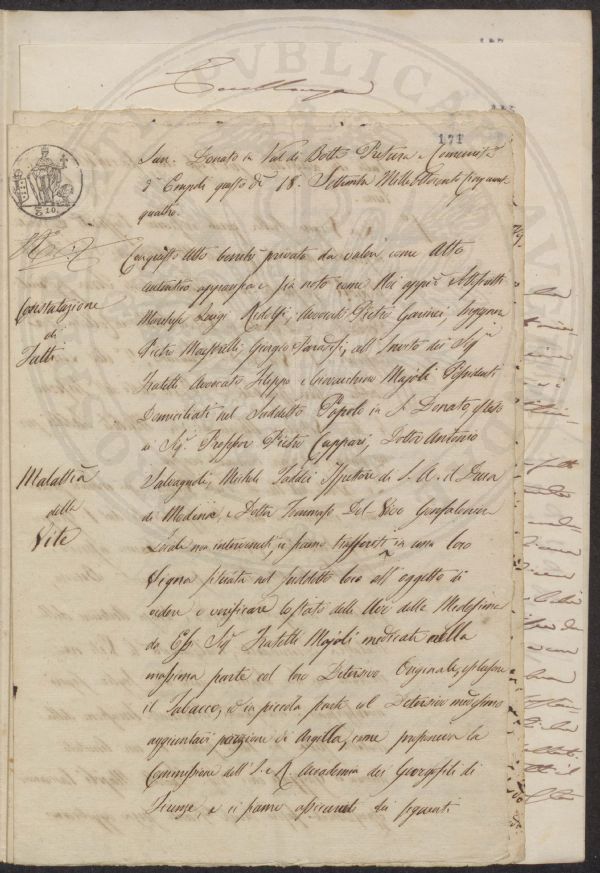 Eccellenza
171
San Donato in Val di Botte Pretura e Comunità
d'Empoli questo dì 18. Settembre Mille Ottocento Cinquant-
quattro.
Con questo Atto benchè privato da valere come Atto
autentico apparisca e sia noto come Noi appiè
Marchese Luigi Ridolfi, Avvocato Pietro
Pietro Giorgio all' Invito dei Sig.ri
Fratelli Avvocato Filippo e Majoli Possidenti
Domiciliati nel Suddetto Popolo in S. Donato
Sig. Pietro Cuppari, Dottor Antonio
Salvagnoli, Michele Taddei Ispettore di S. A. il Duca
di Modena, e Dottor Tommaso Del-Vivo Gonfaloniere
Locale ma ci siamo trasferiti in una loro
Vigna situata nel suddetto loco all'oggetto di
vedere e verificare lo stato delle Uve della Medesima
da Essi Sig.ri Fratelli Majoli medicate nella
massima parte col loro Detersivo Originale,
il Tabacco, ed in piccola parte col Detersivo medesimo
aggiuntavi porzione di Argilla, come proponeva la
Commissione dell' I. e R. Accademia dei Georgofili di
Firenze, e ci siamo assicurati dei seguenti
Constatazione
di
Fatti
Malattia
della
Vite